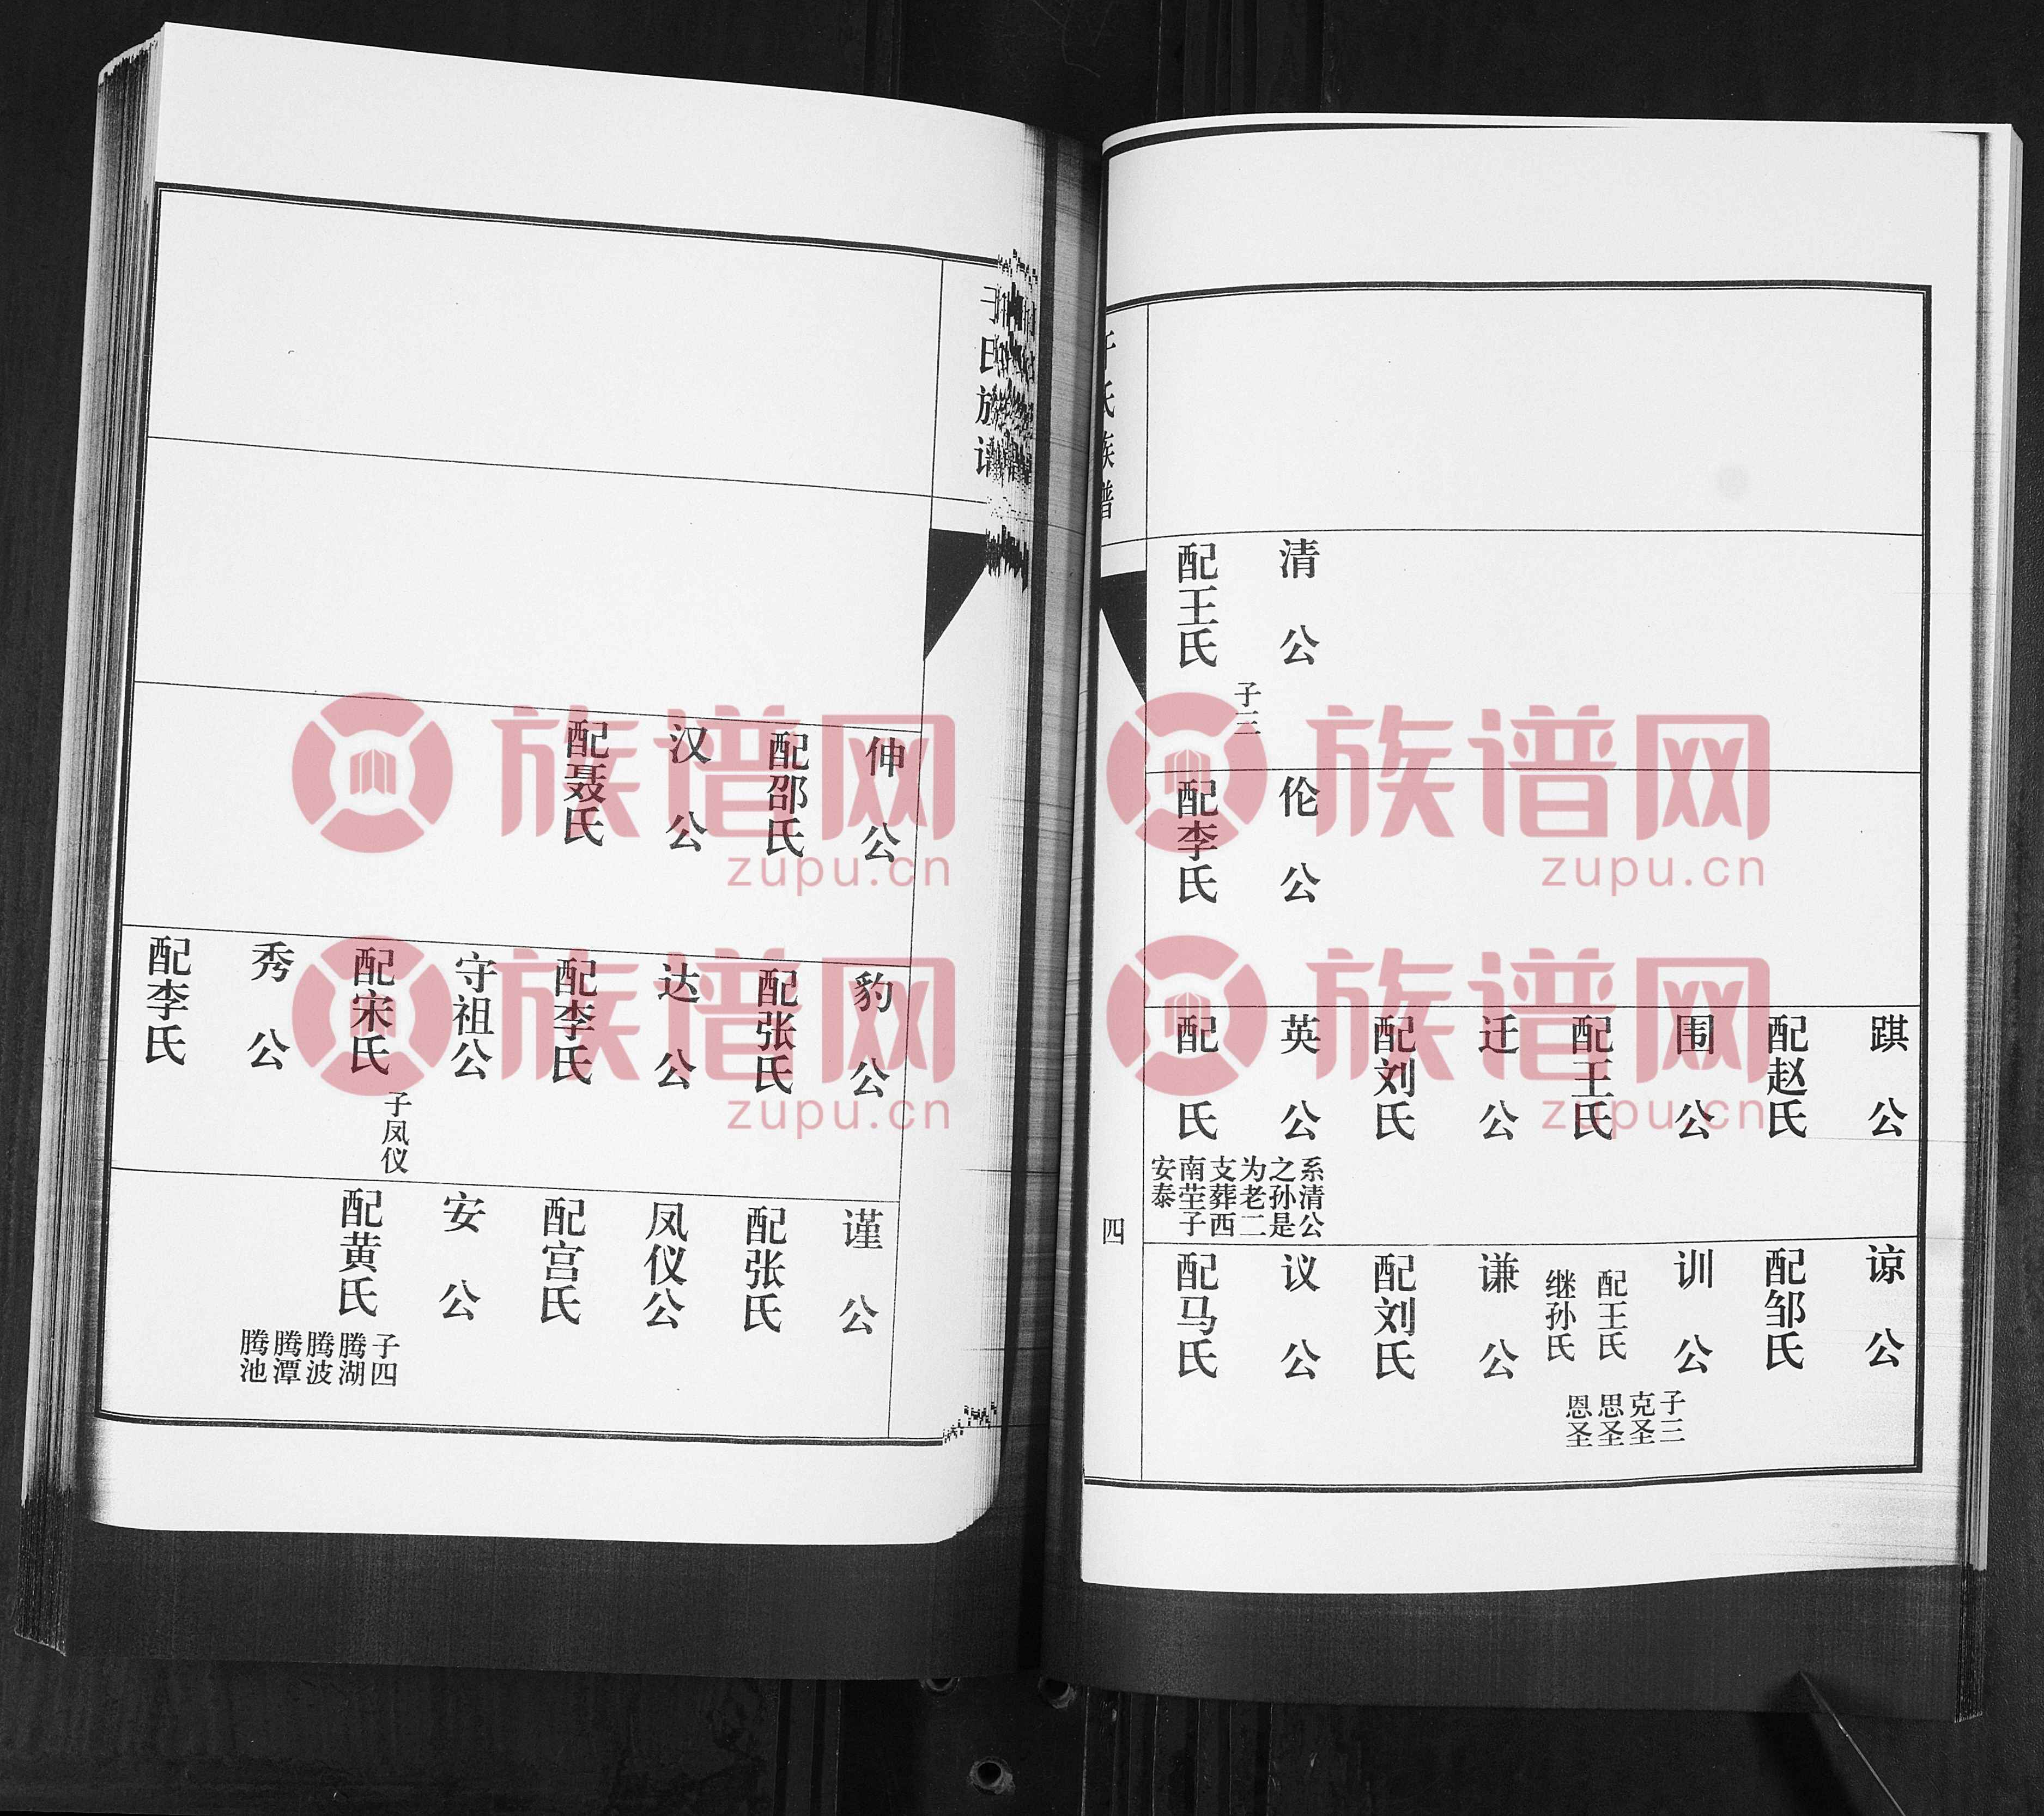 清公
配王氏
子三
伦公
配李氏
踑公
配赵氏
围公
配王氏
迁公
配刘氏
英公
配氏
系清公
之孙是
为老二
支葬西
南茔子
安泰
谅公
配邹氏
训公
配王氏
继孙氏
子三
克圣
思圣
恩圣
谦公
配刘氏
议公
配马氏
氏族谱
四
氏族谱
伸公
配邵氏
汉公
配聂氏
豹公
配张氏
达公
配李氏
守祖公
配宋氏
子凤仪
秀公
配李氏
谨公
配张氏
凤仪公
配宫氏
安公
配黄氏
子四
腾湖
腾波
腾潭
腾池
族谱网
zupu.cn
族谱网
zupu.cn
族谱网
zupu.cn
族谱网
zupu.cn